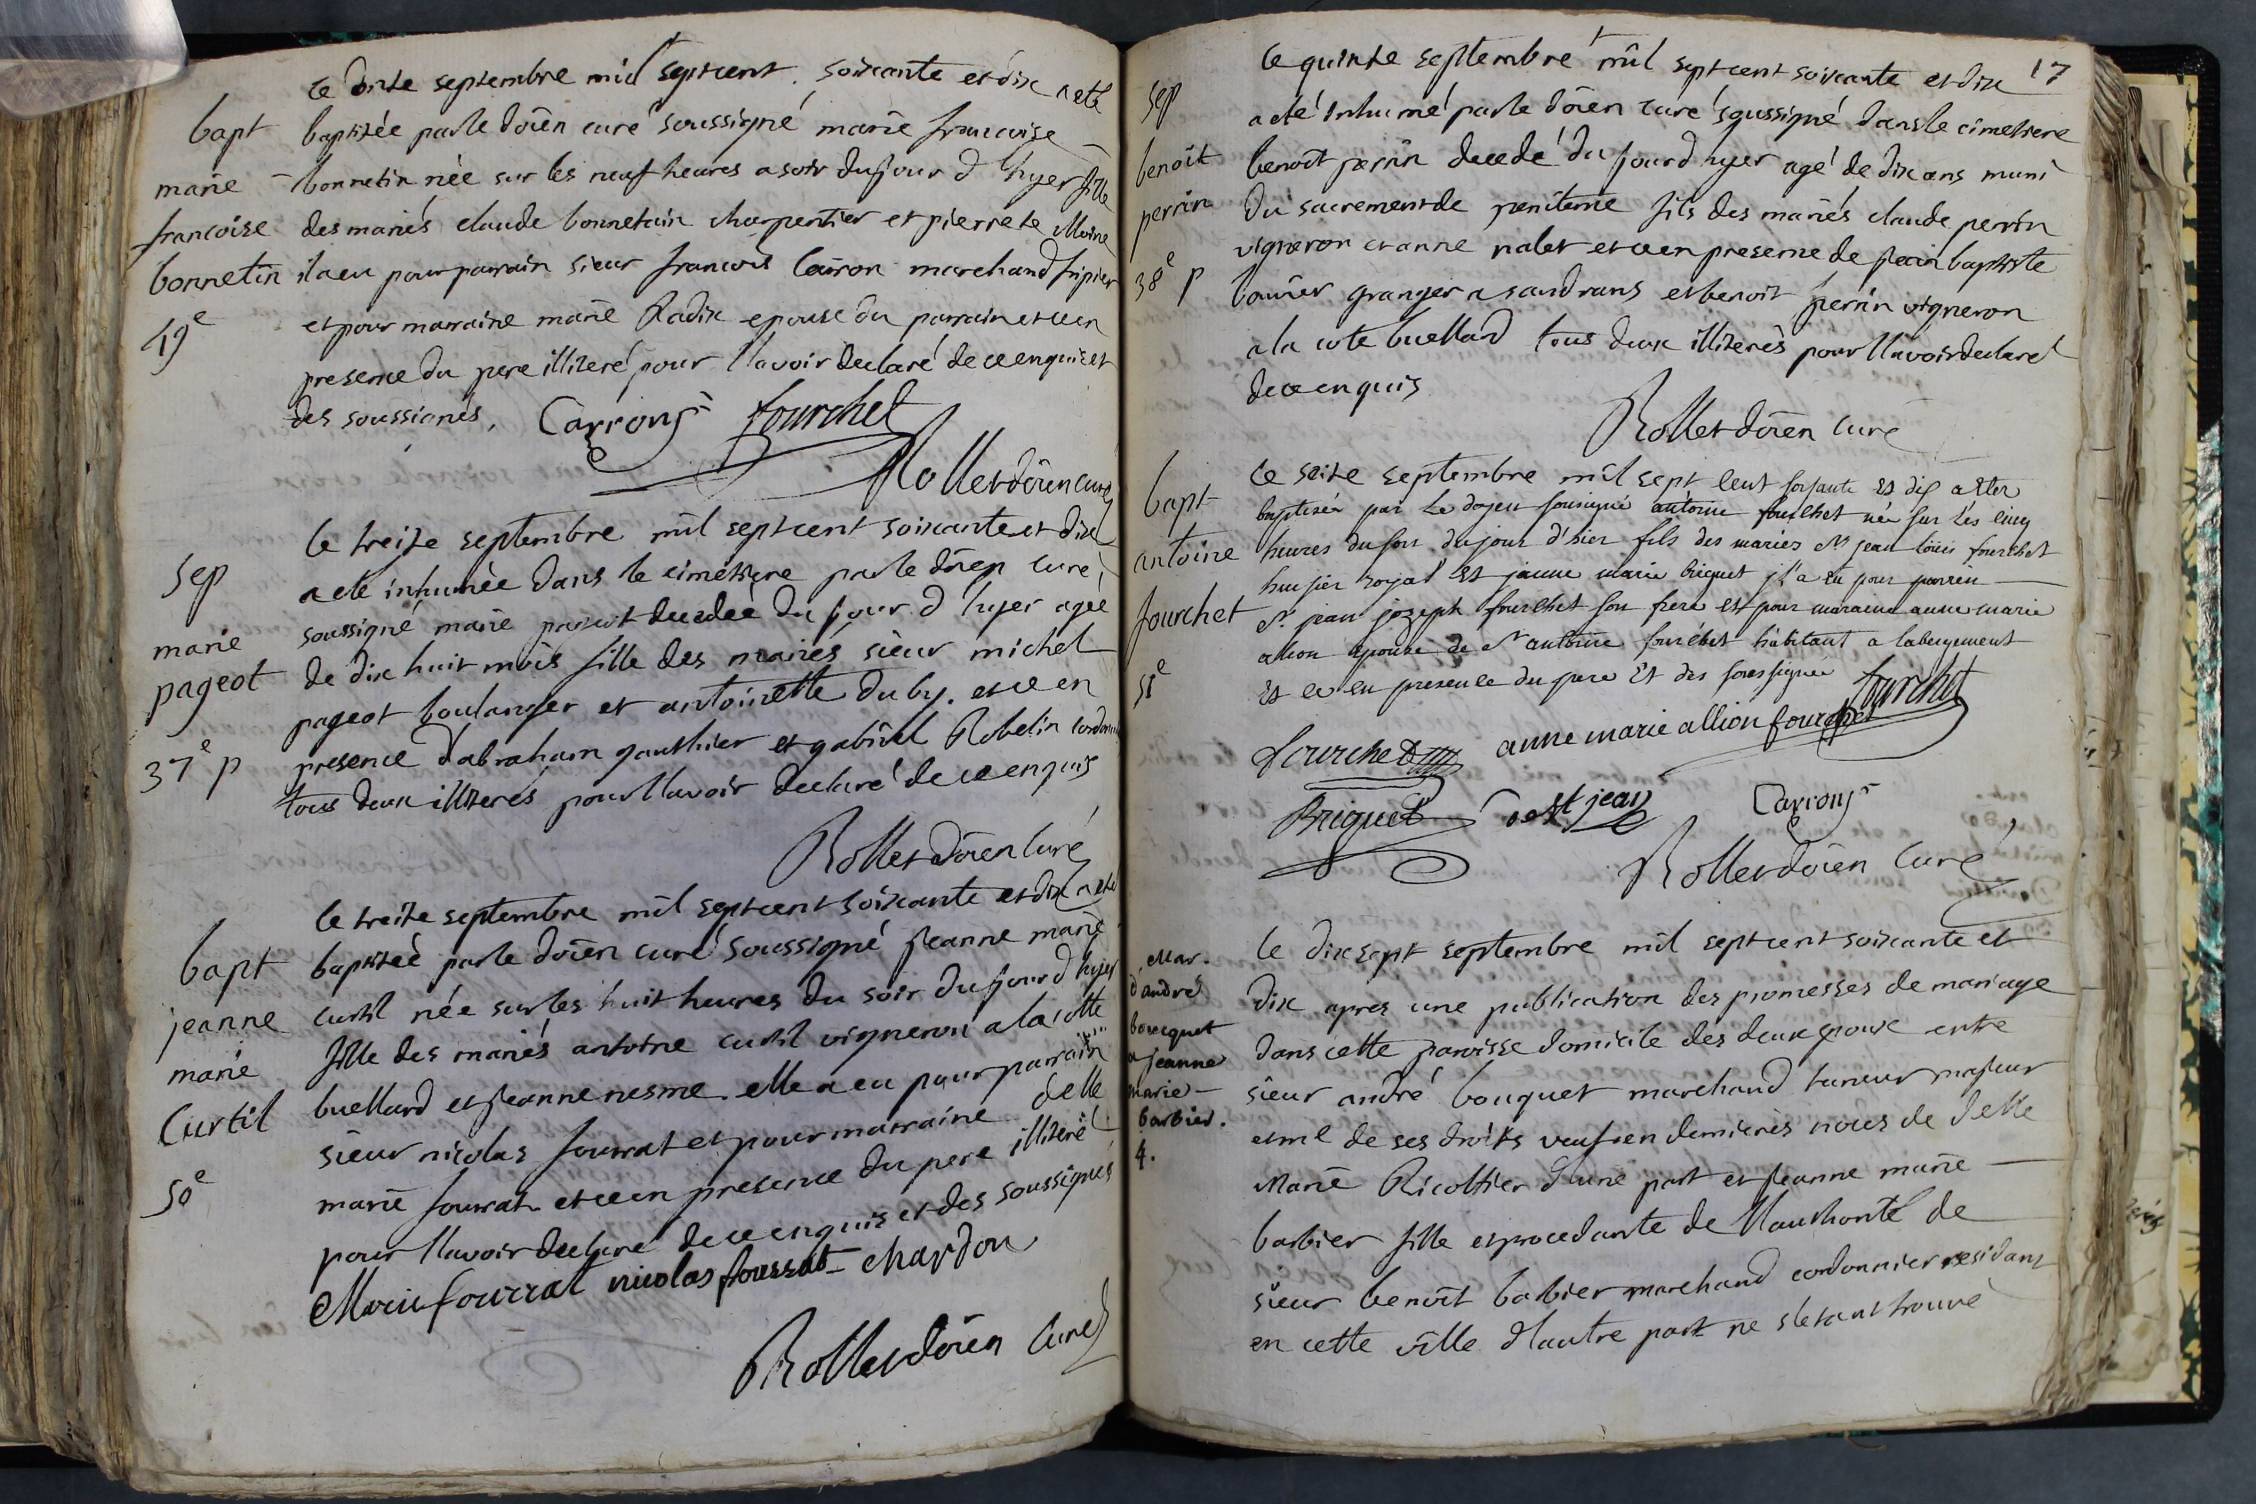 ce onze septembre mil sept cent soixante et dix a eté
bapt baptisée par le doïen curé soussigné marie francoise
marie bonnetin née sur les neuf heures a soir du jour d'hyer fille
francoise des mariés claude bonnetain charpentier et pierrete Moine
bonnetin il a eu pour parrain sieur francois Carron marchand fripier
49e et pour marraine marie Radix epouse du parrain et ce en
presence du pere illiteré pour l'avoir declaré de ce enquis et
des soussignés,
Carron fourchet
Rollet doïen curé
le treize septembre mil sept cent soixante et dix
sep a eté inhumée dans le cimetiere par le doïen curé
soussigné marie pageot decedée du jour d'hyer agée
marie de dix huit mois fille des mariés sieur michel
pageot pageot boulanger et antoinette duby. et ce en
37e p presence d'abraham gauthier et gabriel Robelin
tous deux illiterés pour l'avoir declaré de ce enquis
Rollet doïen curé
le treize septembre mil sept cent soixante et dix a eté
bapt baptisée par le doïen curé soussigné jeanne marie
jeanne curtil née sur les huit heures du soir du jour d'hyer
marie fille des mariés antoine curtil vigneron a la cotte
Curtil buellard et jeanne nesme. elle a eu pour parrain
sieur nicolas fourrat et pour marraine delle
50e marie fourrat. et ce en presence du pere illiteré
pour l'avoir declaré de ce enquis et des soussignés
Marie fourrat nicolas fourrat chardon
Rollet doïen curé
17
le quinze septembre mil sept cent soixante et dix
sep a eté inhumé par le doïen curé soussigné dans le cimetiere
benoît benoît perrin decedé du jour d'hyer agé de dix ans muni
perrin du sacrement de penitence fils des mariés claude perrin
vigneron et anne nalet et ce en presence de jean baptiste
38e p granger a sandrans et benoit perrin vigneron
a la cote buellard tous deux illiterés pour l'avoir declaré
de ce enquis
Rollet doïen curé
le seize septembre mil sept cent soisante et dix a eter
bapt baptisér par le doyen sousigné antoine fourchet né sur les cinq
antoine heures du soir du jour d'hier fils des mariés Sr jean louis fourchet
huisier royal et jeanne marie briguet il a eu pour parrein
fourchet Sr jean jozeph fourchet son frere et pour maraine anne marie
alion epouse de Sr antoine fourchet habitant a labergement
51e et ce en presence du pere et des soussignés fourchet
fourchet anne marie allion fourchet
Briguet de st jean Carron
Rollet doïen curé
Mar. le dix sept septembre mil sept cent soixante et
d'andré dix apres une publication des promesses de mariage
boucquet dans cette paroisse domicile des deux epoux entre
a jeanne sieur andré bouquet marchand taneur majeur
marie et me de ses droits veuf en dernieres noces de delle
barbier. Marie Ricottier d'une part et jeanne marie
4. barbier fille et procedante de l'authorité de
sieur benoît barbier marchand cordonnier residant
en cette ville d'autre part ne s'etant trouvé